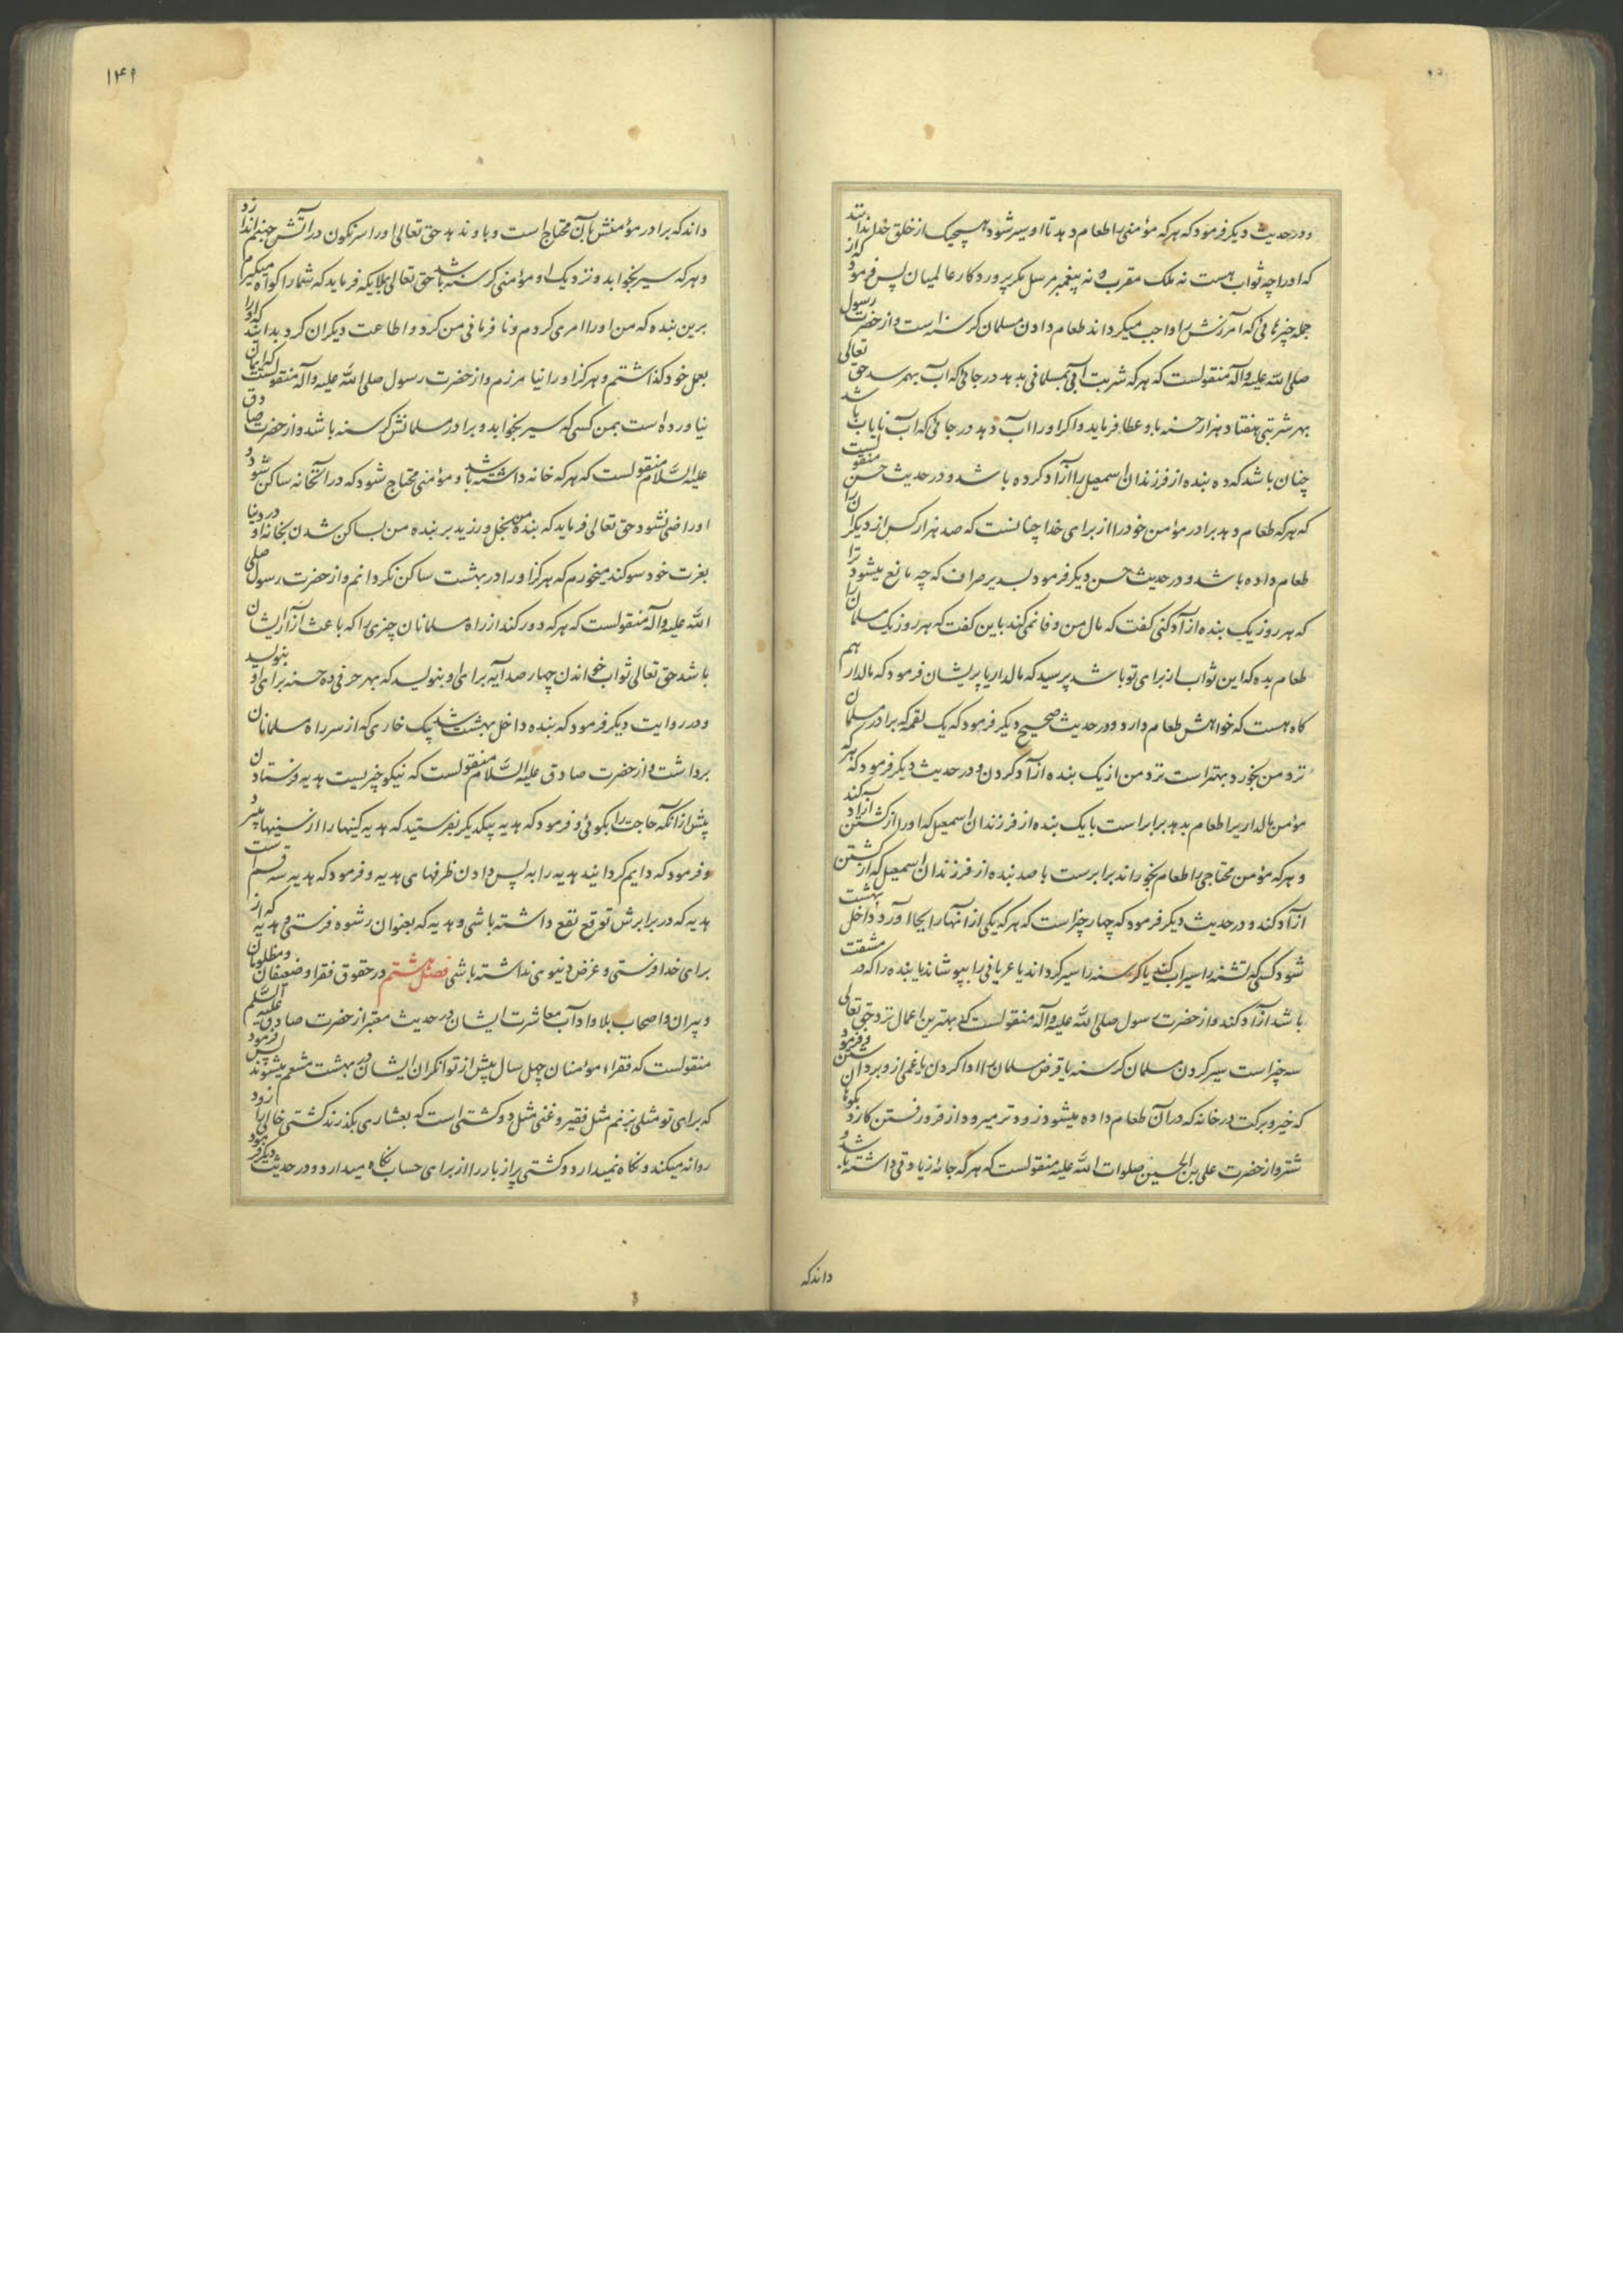 ودر حدیث دیگر فرمود که هر که مؤمنی را طعام دهد تا او سیر شود هیچیک از خلق خدا ندانند
که او را چه ثواب هست نه ملک مقرب و نه پیغمبر مرسل مگر پروردگار عالمیان پس فرمود که از
جمله چیزهائی که آمرزش را واجب میگرداند طعام دادن مسلمان گرسنه است و از حضرت رسول
صلی الله علیه وآله منقولست که هر که شربت آبی بمسلمانی بدهد در جائی که آب بهم رسد حق تعالی
بهر شربتی هفتاد هزار حسنه باو عطا فرماید و اگر او را آب دهد در جائی که آب نایاب باشد
چنان باشد که ده بنده از فرزندان اسمعیل را آزاد کرده باشد و در حدیث حسن منقولست
که هر که طعام دهد برادر مؤمن خود را از برای خدا چنانست که صد هزار کس از دیگران را
طعام داده باشد و در حدیث حسن دیگر فرمود بسدیر صراف که چه مانع میشود ترا
که هر روز یک بنده آزاد کنی گفت که مال من وفا نمی کند باین گفت که هر روز یک مسلمان را
طعام بده که این ثواب از برای تو باشد پرسید که مالدار یا پریشان فرمود که مالدار هم
گاه هست که خواهش طعام دارد و در حدیث صحیح دیگر فرمود که یک لقمه که برادر مسلمان
نزد من بخورد بهتر است نزد من از یک بنده آزاد کردن و در حدیث دیگر فرمود که هر که
مؤمن مالداریرا طعام بدهد برابر است با یک بنده از فرزندان اسمعیل که او را از کشتن آزاد کند
و هر که مؤمن محتاجی را طعام بخوراند برابرست با صد بنده از فرزندان اسمعیل که از کشتن
آزاد کند و در حدیث دیگر فرمود که چهار چیز است که هر که یکی از آنها را بجا آورد داخل بهشت
شود کسی که تشنه را سیراب کند یا گرسنه را سیر گرداند یا عریانی را بپوشاند یا بنده را که در مشقت
باشد آزاد کند و از حضرت رسول صلی الله علیه وآله منقولست که بهترین اعمال نزد حق تعالی
سه چیز است سیر کردن مسلمان گرسنه یا قرض مسلمان را ادا کردن یا غمی از و برداشتن و فرمود
که خیر و برکت در خانه که در آن طعام داده میشود زودتر میرود از فرو رفتن کارد بکوهان
شتر و از حضرت علی بن الحسین صلوات الله علیه منقولست که هر که جامه زیادتی داشته باشد و
داند که
۱۴۹
داند که برادر مؤمنش بآن محتاج است و باو ندهد حق تعالی او را سرنگون در آتش جهنم اندازد
و هر که سیر بخوابد و نزدیک او مؤمنی گرسنه باشد حق تعالی بملایکه فرماید که شما را گواه میگیرم
برین بنده که من او را امری کردم و نافرمانی من کرد و اطاعت دیگران کرد بدانید که او را
بعمل خود گذاشتم و هرگز او را نیامرزم و از حضرت رسول صلی الله علیه وآله منقولست که ایمان
نیاورده است بمن کسی که سیر بخوابد و برادر مسلمانش گرسنه باشد و از حضرت صادق
علیه السلام منقولست که هر که خانه داشته باشد و مؤمنی محتاج شود که در آنخانه ساکن شود و
او راضی نشود حق تعالی فرماید که بنده من بخل ورزید بر بنده من بساکن شدن بخانه او در دنیا
بعزت خود سوگند میخورم که هرگز او را در بهشت ساکن نگردانم و از حضرت رسول صلی
الله علیه وآله منقولست که هر که دور کند از راه مسلمانان چیزی را که باعث آزار ایشان
باشد حق تعالی ثواب خواندن چهار صد آیه برای او بنویسد که بهر حرفی ده حسنه برای او بنویسد
و در روایت دیگر فرمود که بنده داخل بهشت شد بیک خاری که از سر راه مسلمانان
برداشت و از حضرت صادق علیه السلام منقولست که نیکو چیزیست هدیه فرستادن
پیش از آنکه حاجت را بگوئی و فرمود که هدیه بیکدیگر بفرستید که هدیه کینها را از سینها میبرد
و فرمود که دایم گردانید هدیه را به پس دادن ظرفهای هدیه و فرمود که هدیه سه قسم است
هدیه که در برابرش توقع نفع داشته باشی و هدیه که بعنوان رشوه فرستی و هدیه که از
برای خدا فرستی و غرض دنیوی نداشته باشی فصل هشتم در حقوق فقرا و ضعیفان و مظلومان
و پیران و اصحاب بلا و آداب معاشرت ایشان در حدیث معتبر از حضرت صادق علیه السلم
منقولست که فقراء مؤمنان چهل سال پیش از توانگران ایشان در بهشت متنعم میشوند پس فرمود
که برای تو مثلی بزنم مثل فقیر و غنی مثل دو کشتی است که بعشاری بگذرند کشتی خالی را زود
روانه میکند و نگاه نمیدارد و کشتی پر از بار را از برای حساب نگاه میدارد و در حدیث دیگر فرمود